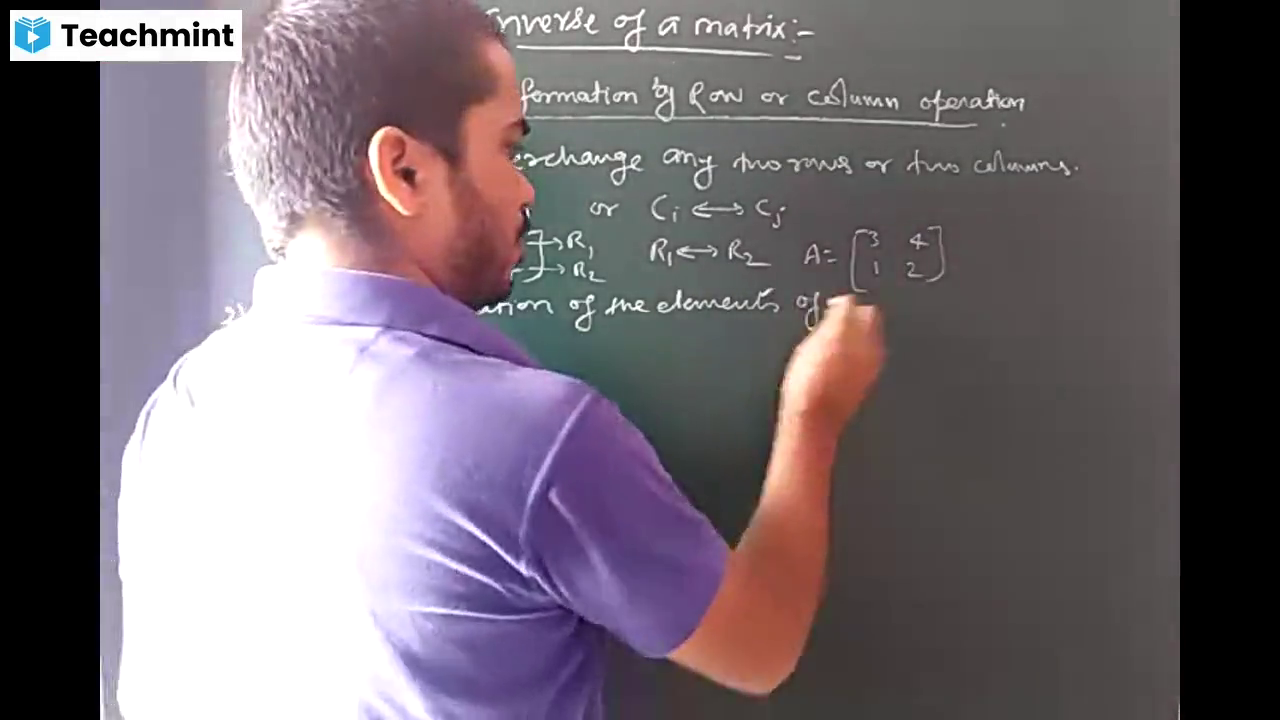 Teachmint
Inverse of a matrix:-
formation by Row or column operation
erchange any two rows or two columns.
or Ci ↔ Cj
→R1 R1 ↔ R2 A = [3 4
→R2 1 2]
ation of the elements of